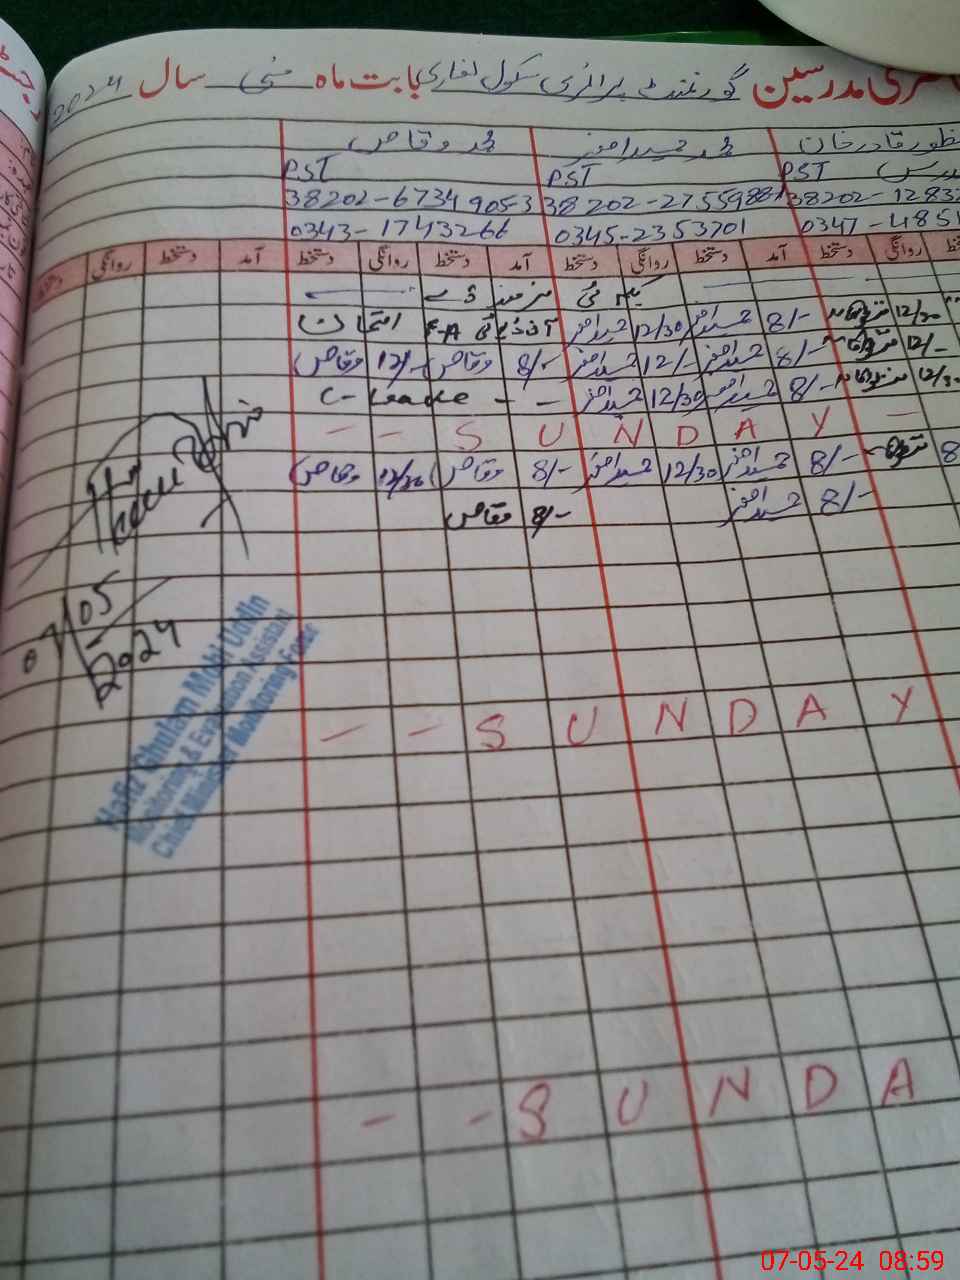 حاضری مدرسین گورنمنٹ پرائمری سکول لغاری بابت ماہ مئی سال 2024
منظور قادر خان محمد حمید اصغر محمد وقاص
مدرس PST PST PST
38202-12832 38202-2755988 38202-6734905-3
0347-4851 0345-2353701 0343-1743266
روانگی دستخط آمد دستخط روانگی دستخط آمد دستخط روانگی دستخط آمد دستخط روانگی دستخط
یکم مئی مزدور ڈے
12/30 8/- حمید اصغر 12/30 حمید اصغر امتحان
12/- 8/- حمید اصغر 12/- حمید اصغر 8/- وقاص 12/- وقاص
12/30 8/- حمید اصغر 12/30 حمید اصغر - - C- Leave
- - S U N D A Y -
8 8/- حمید اصغر 12/30 حمید اصغر 8/- وقاص 12/30 وقاص
8/- حمید اصغر 8/- وقاص
05
2024
Hafiz Ghulam Mohi Uddin
Monitoring & Evaluation Assistant
Chief Minister Monitoring Force
- - S U N D A Y
- - S U N D A
07-05-24 08:59